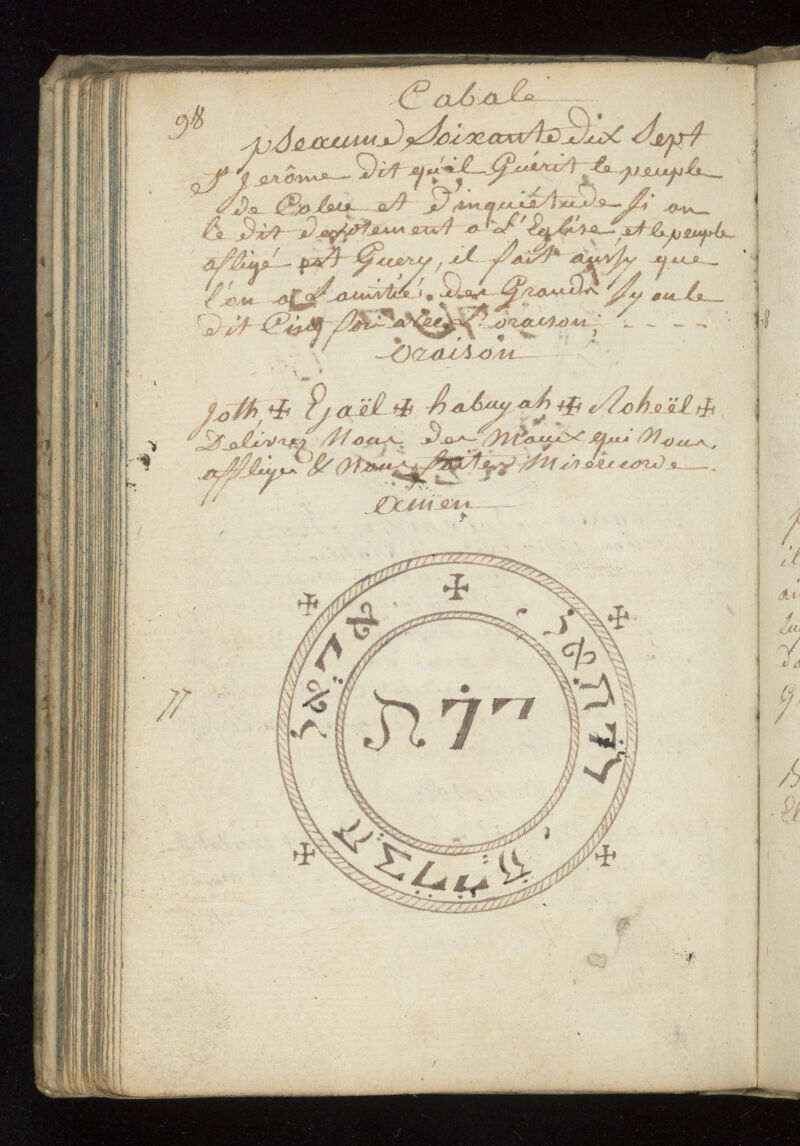 Cabale
98
pSeaume Soixante dix Sept
St Jerôme dit qu'il Guérit le peuple
de Colere et d'inquiétude Si on
le dit devotement a L'Eglise, et le peuple
afligé est Guery, il fait aussy que
l'on a L'amitié des Grands Sy on le
dit Cinq fois avec L'oraison,
oraison
Joth ✠ Ejaël ✠ habuyah ✠ Roheël ✠
Delivrez Nous des Maux qui Nous
affliges & Nous faites Misericorde.
Amen
77